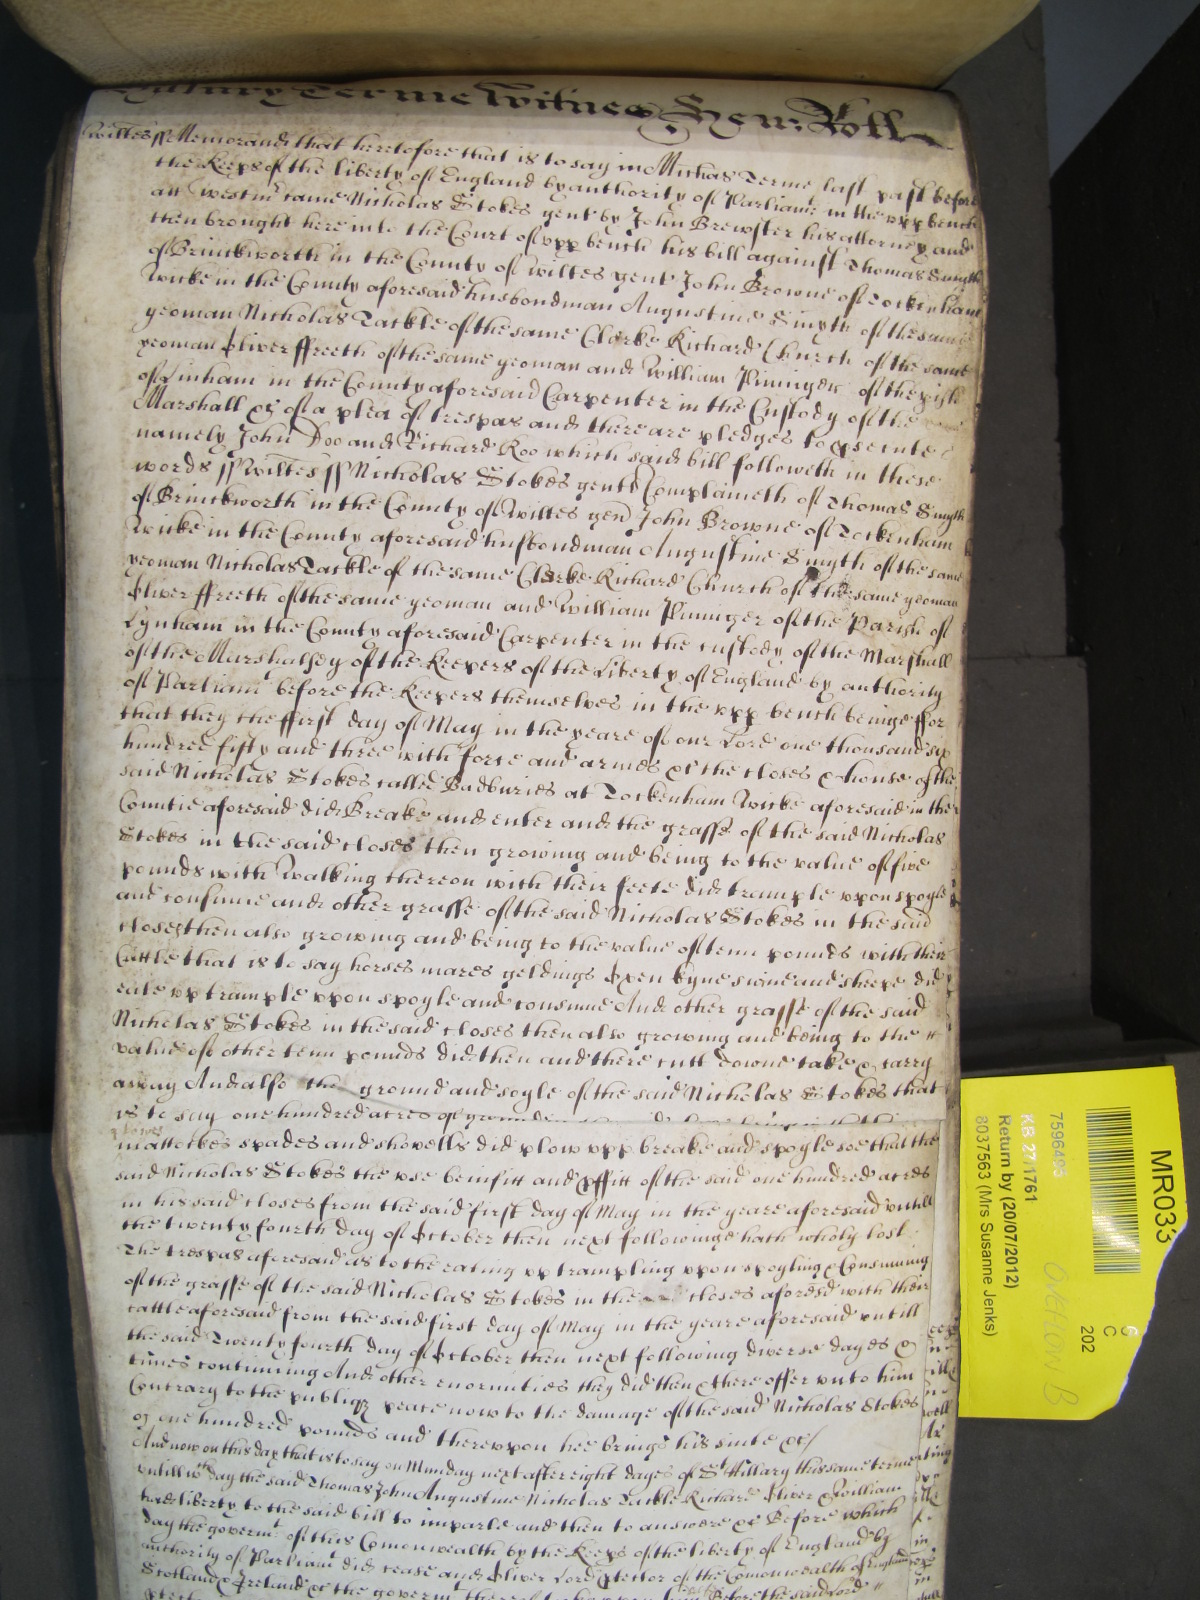 Hillary Terme Witnes Hen: Roll
Wiltes ss Memorand that heretofore that is to say in Michas Terme last past before
the Keeps of the liberty of England by authority of Parliamt in the upp bench
att Westmr came Nicholas Stokes gent by John Brewster his attorney and
then brought here into the Court of upp bench his bill against Thomas Smyth
of Brinckworth in the County of Wiltes gent John Browne of Tockenham
Wicke in the County aforesaid husbondman Augustine Smyth of the same
yeoman Nicholas Tackle of the same Clarke Richard Church of the same
yeoman Oliver ffreeth of the same yeoman and William Pinniger of the pish
of Linham in the County aforesaid Carpenter in the Custody of the
Marshall &c of a plea of trespas and there are pledges to psecute
namely John Doo and Richard Roo which said bill followeth in these
words ss Wiltes ss Nicholas Stokes gent Complaineth of Thomas Smyth
of Brinckworth in the County of Wiltes gen John Browne of Tockenham
Wicke in the County aforesaid husbondman Augustine Smyth of the same
yeoman Nicholas Tackle of the same Clarke Richard Church of the same yeoman
Oliver ffreeth of the same yeoman and William Pinniger of the Parish of
Lynham in the County aforesaid Carpenter in the custody of the Marshall
of the Marshallsey of the Keepers of the Liberty of England by authority
of Parliamt before the Keepers themselves in the upp bench beinge ffor
that they the ffirst day of May in the yeare of our Lord one thousand six
hundred fifty and three with force and armes &c the closes & house of the
said Nicholas Stokes called Badburies at Tockenham Wicke aforesaid in the
Countie aforesaid did Breake and enter and the grasse of the said Nicholas
Stokes in the said closes then growing and being to the value of five
pounds with walking thereon with their feete did trample uppon spoyle
and consume and other grasse of the said Nicholas Stokes in the said
closes then also growing and being to the value of tenn pounds with their
Cattle that is to say horses mares geldings Oxen kyne swine and sheepe did
eate up trample uppon spoyle and consume And other grasse of the said
Nicholas Stokes in the said closes then also growing and being to the
value of other tenn pounds did then and there cutt downe take & carry
away And also the ground and soyle of the said Nicholas Stokes that
is to say one hundred acres of
mattockes spades and showells did plow upp breake and spoyle soe that the
said Nicholas Stokes the use benifitt and pffitt of the said one hundred acres
in his said closes from the said first day of May in the yeare aforesaid untill
the twenty fourth day of October then next followinge hath wholy lost
The trespas aforesaid as to the eating up trampling uppon spoyling & Consuming
of the grasse of the said Nicholas Stokes in the closes aforesd with their
cattle aforesaid from the said first day of May in the yeare aforesaid untill
the said Twenty fourth day of October then next following diverse dayes &
times continuing And other enormities they did then & there offer unto him
Contrary to the publique peace now to the damage of the said Nicholas Stokes
of one hundred pounds and thereuppon hee brings his suite &c/
And now on this day that is to say on Munday next after eight dayes of St Hillary this same terme
untill wch day the said Thomas John Augustine Nicholas Tackle Richard Oliver & William
had liberty to the said bill to imparle and then to answere &c Before which
day the governmt of this Comonwealth by the Keeps of the liberty of England by
authority of Parliamt did cease and Oliver Lord ptector of the Comonwealth of England
Scotland & Ireland &c the governmt thereof Before the said Lord
MR033
7596495
KB 27/1761
Return by (20/07/2012)
8037563 (Mrs Susanne Jenks)
6
C
202